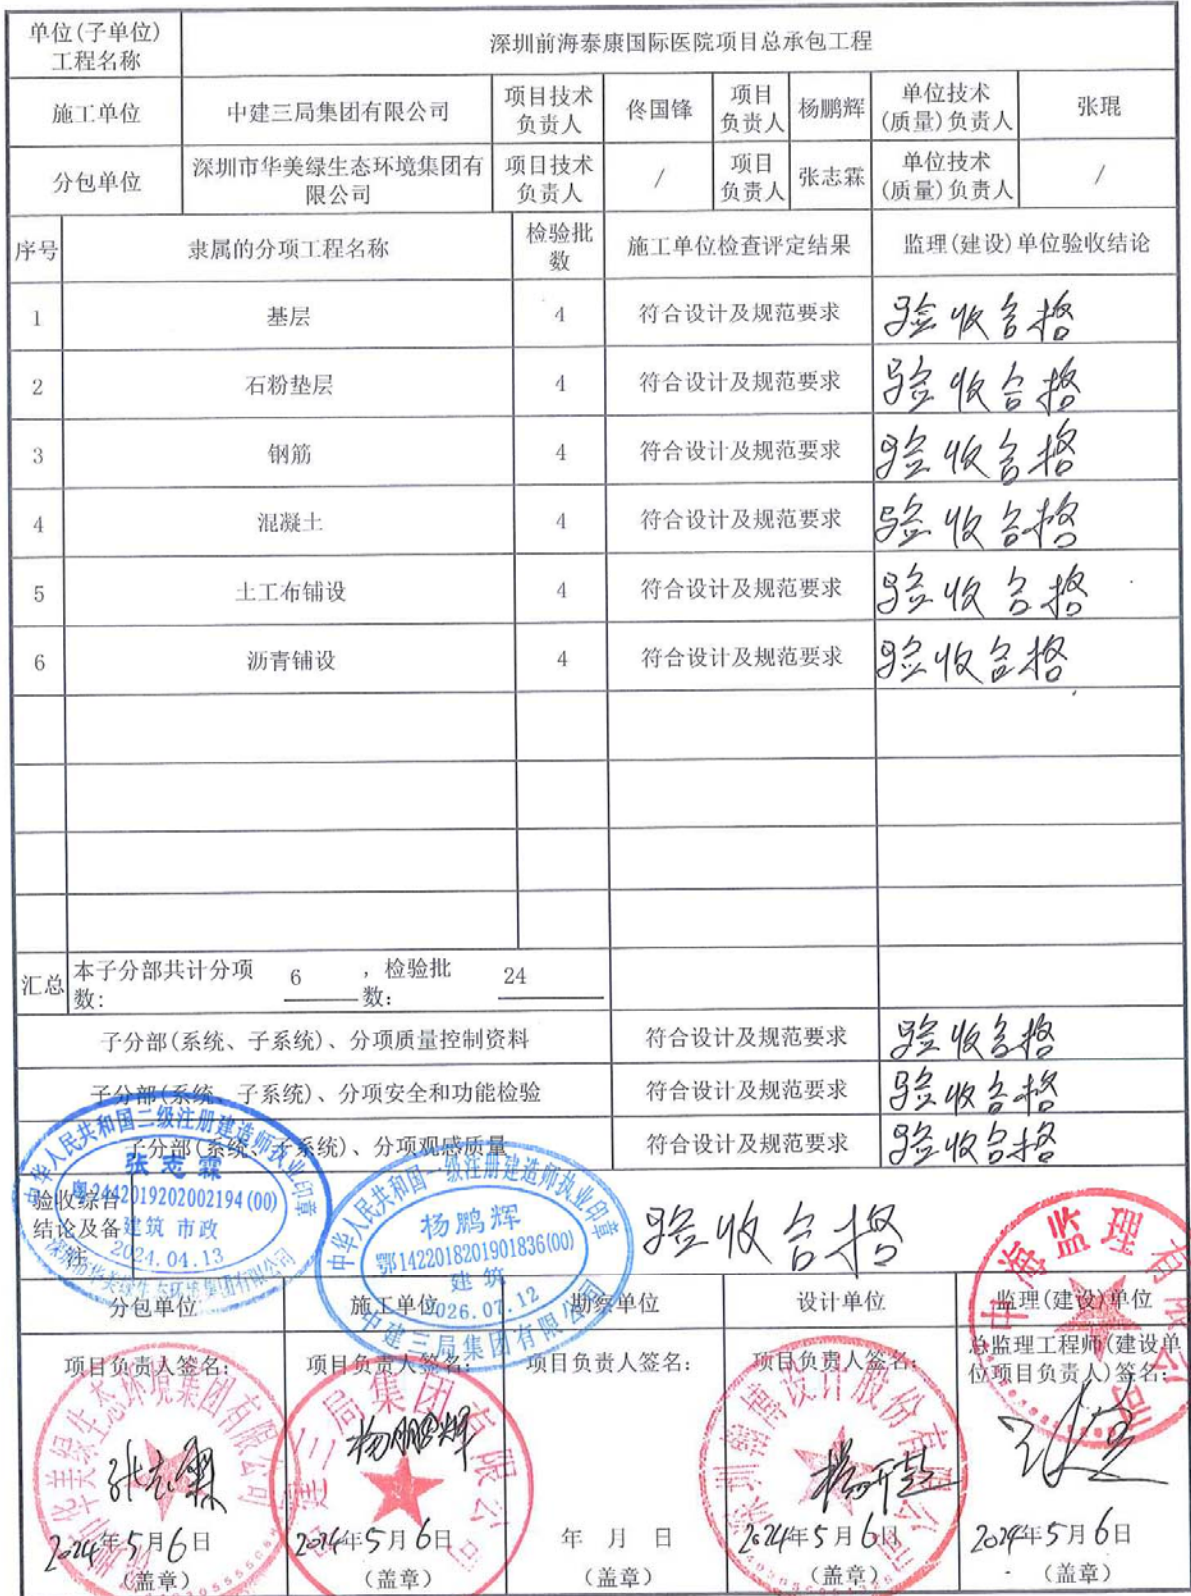 单位(子单位)
工程名称
深圳前海泰康国际医院项目总承包工程
施工单位
中建三局集团有限公司
项目技术
负责人
佟国锋
项目
负责人
杨鹏辉
单位技术
(质量)负责人
张琨
分包单位
深圳市华美绿生态环境集团有
限公司
项目技术
负责人
/
项目
负责人
张志霖
单位技术
(质量)负责人
/
序号
隶属的分项工程名称
检验批
数
施工单位检查评定结果
监理(建设)单位验收结论
1 基层 4 符合设计及规范要求 验收合格
2 石粉垫层 4 符合设计及规范要求 验收合格
3 钢筋 4 符合设计及规范要求 验收合格
4 混凝土 4 符合设计及规范要求 验收合格
5 土工布铺设 4 符合设计及规范要求 验收合格
6 沥青铺设 4 符合设计及规范要求 验收合格
汇总
本子分部共计分项
数:
6
,检验批
数:
24
子分部(系统、子系统)、分项质量控制资料 符合设计及规范要求 验收合格
子分部(系统、子系统)、分项安全和功能检验 符合设计及规范要求 验收合格
子分部(系统、子系统)、分项观感质量 符合设计及规范要求 验收合格
验收综合
结论及备
注
验收合格
中华人民共和国二级注册建造师执业印章
张志霖
粤2442019202002194(00)
建筑 市政
2024.04.13
中华人民共和国一级注册建造师执业印章
杨鹏辉
鄂1422018201901836(00)
建筑
2026.07.12
中建三局集团有限公司
中海监理有限公司
分包单位
施工单位
勘察单位
设计单位
监理(建设)单位
项目负责人签名:
项目负责人签名:
项目负责人签名:
项目负责人签名:
总监理工程师(建设单
位项目负责人)签名:
张志霖
杨鹏辉
2024年5月6日
2024年5月6日
年 月 日
2024年5月6日
2024年5月6日
(盖章)
(盖章)
(盖章)
(盖章)
(盖章)